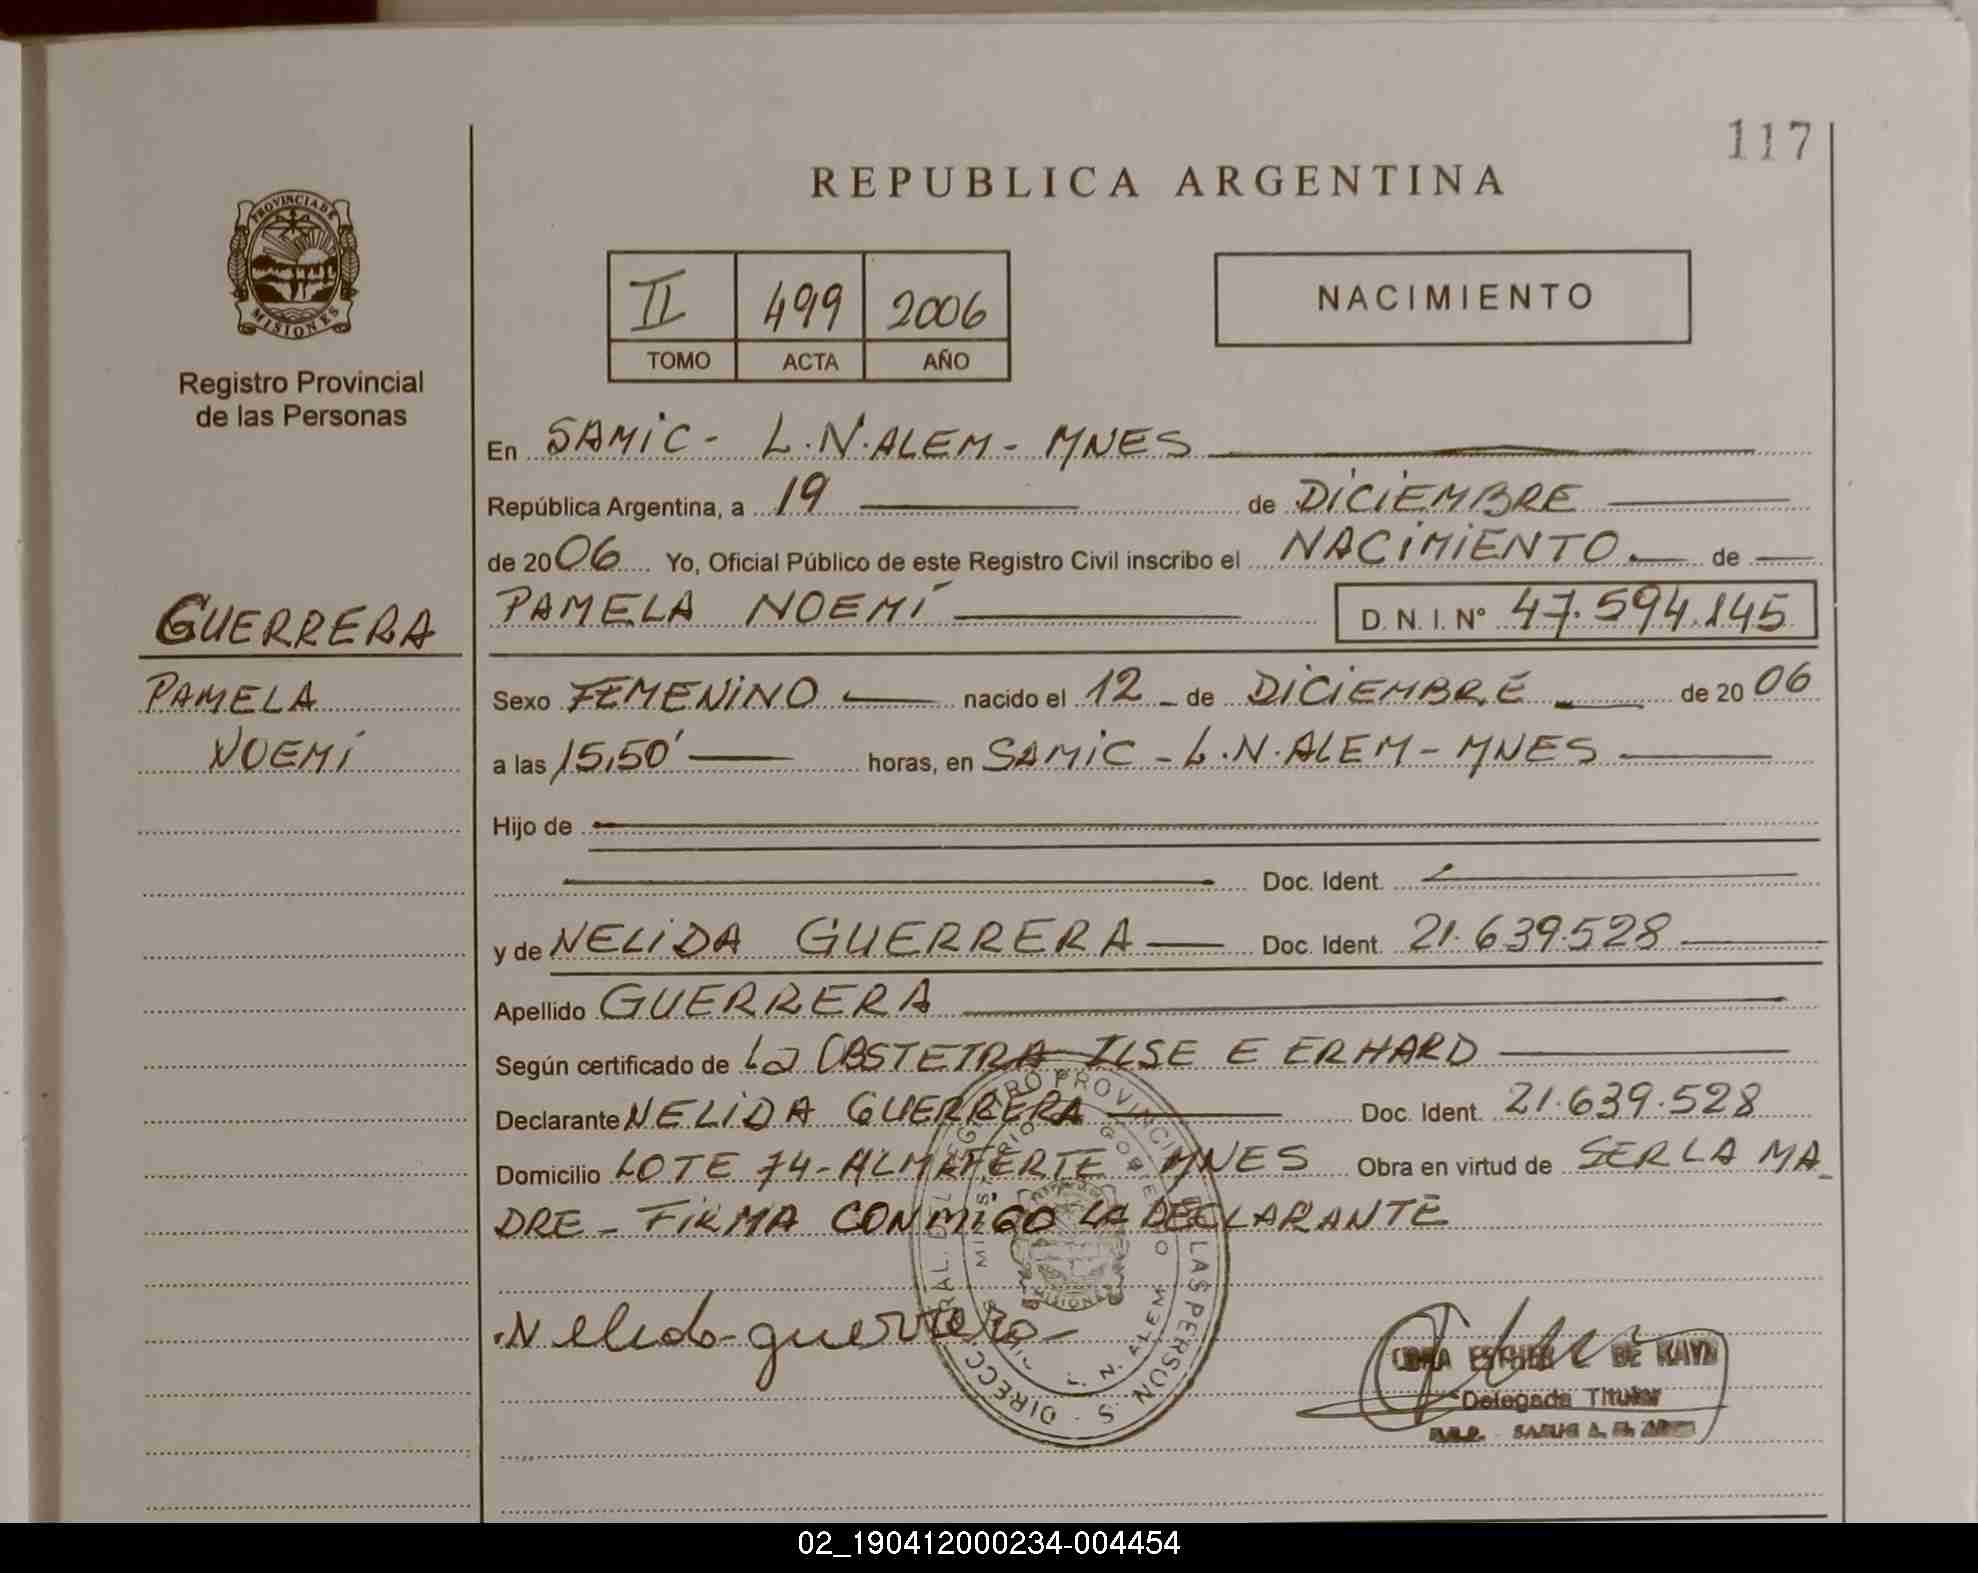 117
REPUBLICA ARGENTINA
PROVINCIA DE
MISIONES
Registro Provincial
de las Personas
II 499 2006
TOMO ACTA AÑO
NACIMIENTO
En SAMIC - L.N. ALEM - MNES
República Argentina, a 19 de DICIEMBRE
de 2006 Yo, Oficial Público de este Registro Civil inscribo el NACIMIENTO de
GUERRERA
PAMELA
NOEMÍ
PAMELA NOEMÍ D. N. I. N° 47.594.145
Sexo FEMENINO nacido el 12 de DICIEMBRE de 2006
a las 15,50' horas, en SAMIC - L.N. ALEM - MNES
Hijo de
Doc. Ident.
y de NELIDA GUERRERA Doc. Ident. 21.639.528
Apellido GUERRERA
Según certificado de La OBSTETRA ILSE E ERHARD
Declarante NELIDA GUERRERA Doc. Ident. 21.639.528
Domicilio LOTE 74 - ALMAFERTE MNES Obra en virtud de SER LA MA_
DRE - FIRMA CONMIGO LA DECLARANTE
Nelida guerrera
DE
Delegada Titular
02_190412000234-004454